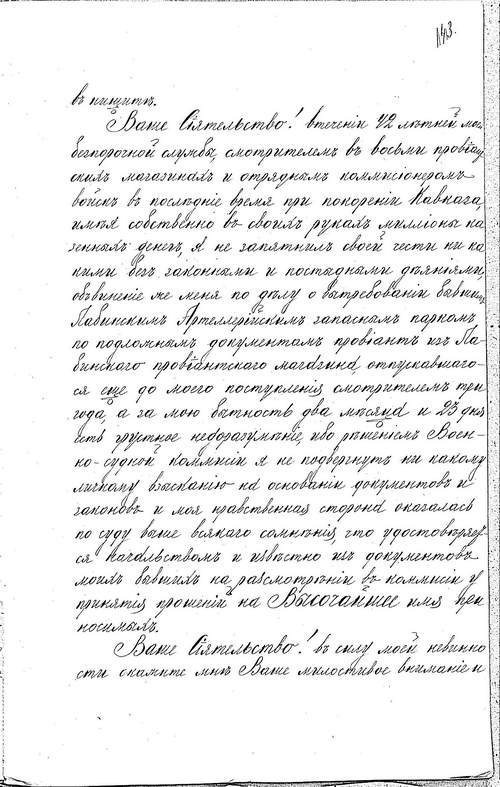 143.
въ нищитѣ.
Ваше Сіятельство! втеченіи 42 лѣтней моей
безпорочной службы, смотрителемъ въ восьми провіант
скихъ магазинахъ и отряднымъ коммисіонеромъ
войскъ въ послѣднѣе время при покореніи Кавказа,
имѣя собственно въ своихъ рукахъ милліоны ка
зенныхъ денегъ, я не запятнилъ своей чести ни ка
кими безъ законными и постыдными дѣяніями
объвиненіе же меня по дѣлу о вытребованіи бывшимъ
Лабинскимъ Артеллерійскимъ запаснымъ паркомъ
по подложнымъ документамъ провіантъ изъ Ла-
бинскаго провіантскаго магазина, отпускавшаго-
ся еще до моего поступленія смотрителемъ три
года, а за мою бытность два мѣсяца и 23 дня
есть грустное недоразумѣніе, ибо рѣшеніемъ Воен-
но-судной коммисіи я не подвергнутъ ни какому
личному взысканію на основаніи документовъ и
законовъ и моя нравственная сторона оказалась
по суду выше всякаго сомнѣнія, что удостовѣряет
ся начальствомъ и извѣстно изъ документовъ
моихъ бывшихъ на разсмотрѣніи въ коммисіи у
принятія прошеній на Высочайшее имя при
носимыхъ.
Ваше Сіятельство! въ силу моей невинно
сти окажите мнѣ Ваше милостивое вниманіе и